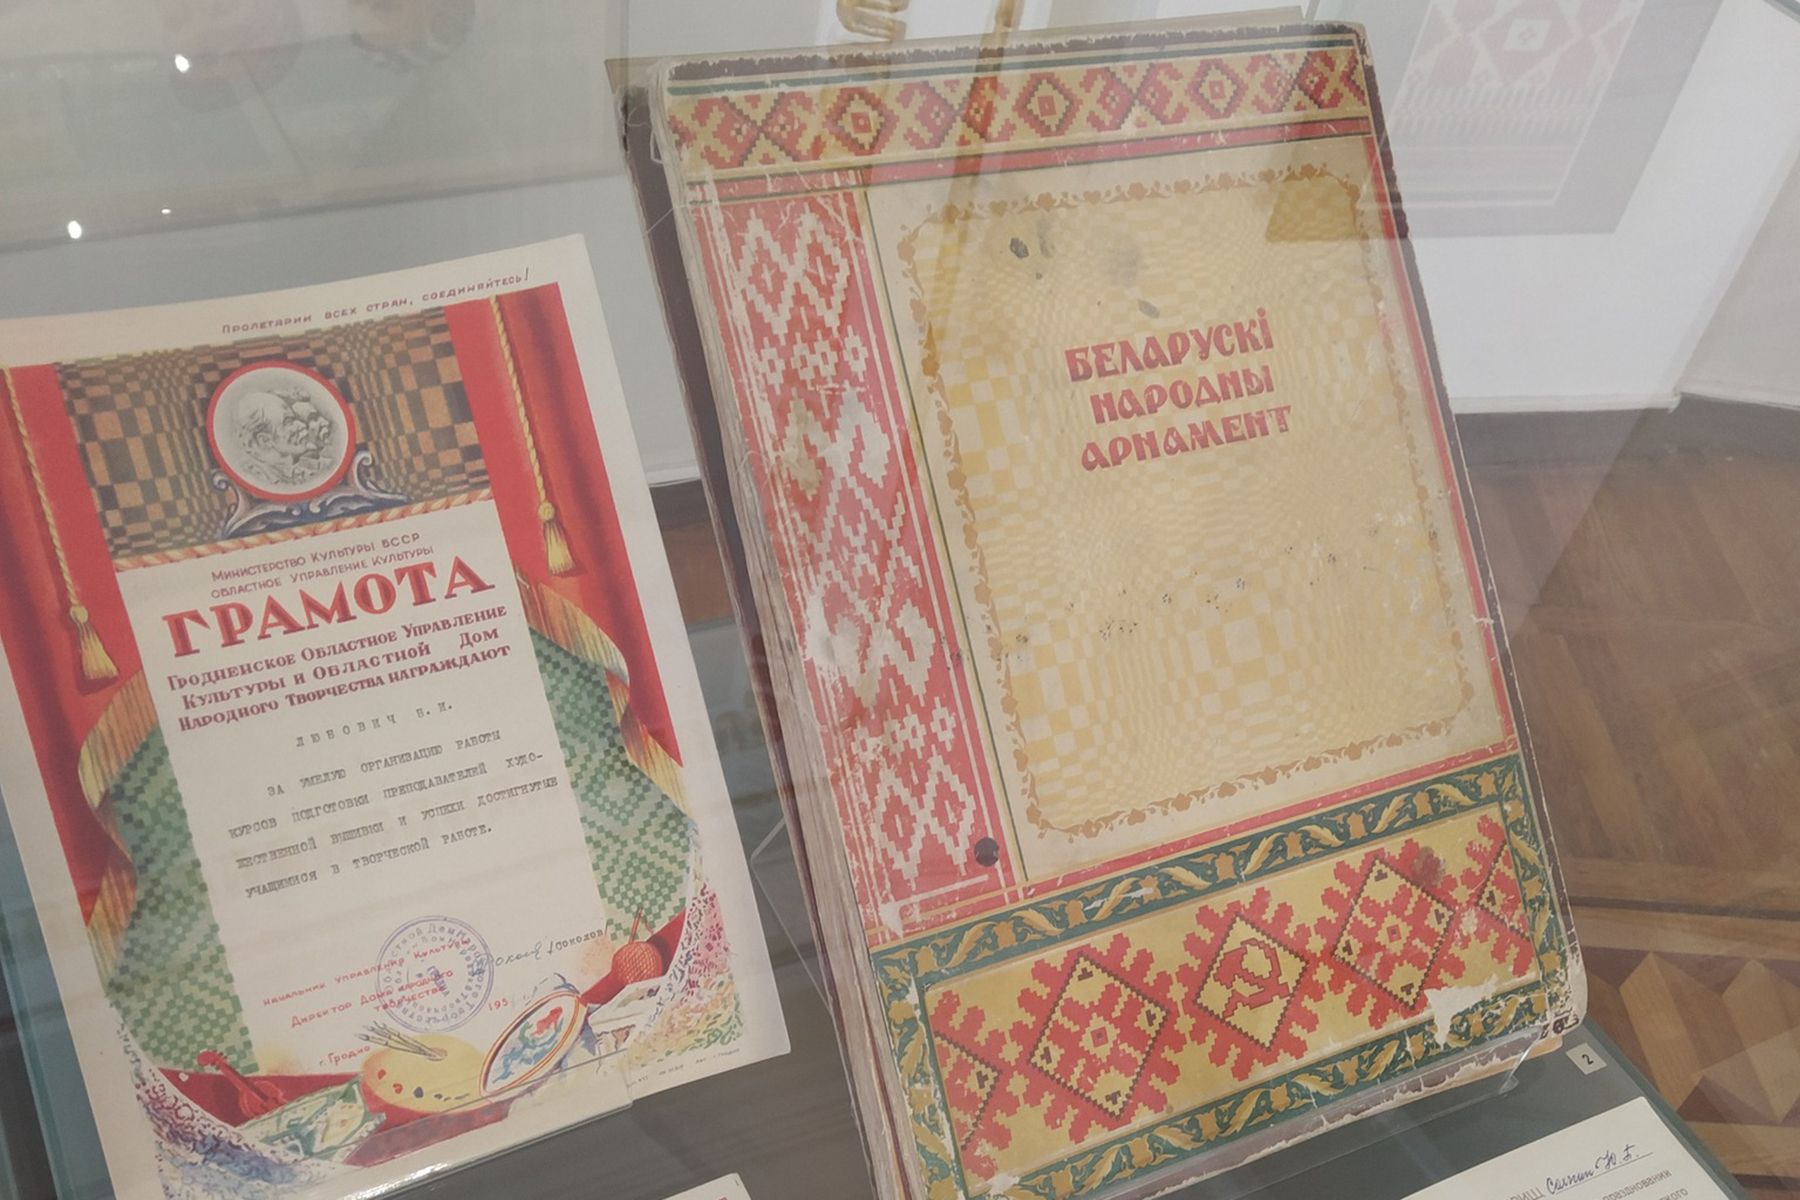 Пролетарии всех стран, соединяйтесь!
Министерство Культуры БССР
областное управление культуры
ГРАМОТА
Гродненское Областное Управление
Культуры и Областной Дом
Народного Творчества награждают
ЛЮБОВИЧ
ЗА УМЕЛУЮ ОРГАНИЗАЦИЮ РАБОТЫ
КУРСОВ ПОДГОТОВКИ ПРЕПОДАВАТЕЛЕЙ ХУДО-
ЖЕСТВЕННОЙ ВЫШИВКИ И УСПЕХИ ДОСТИГНУТЫЕ
УЧАЩИМИСЯ В ТВОРЧЕСКОЙ РАБОТЕ.
Начальник управления Культуры
/Соколов/
Директор Дома народного
творчества
195
г. Гродно
БЕЛАРУСКІ
НАРОДНЫ
АРНАМЕНТ
2